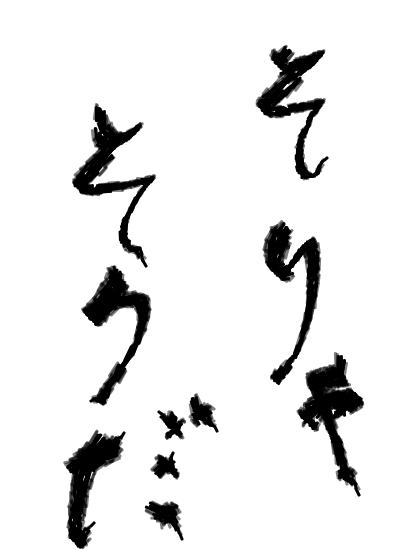 そりゃ
そうだ